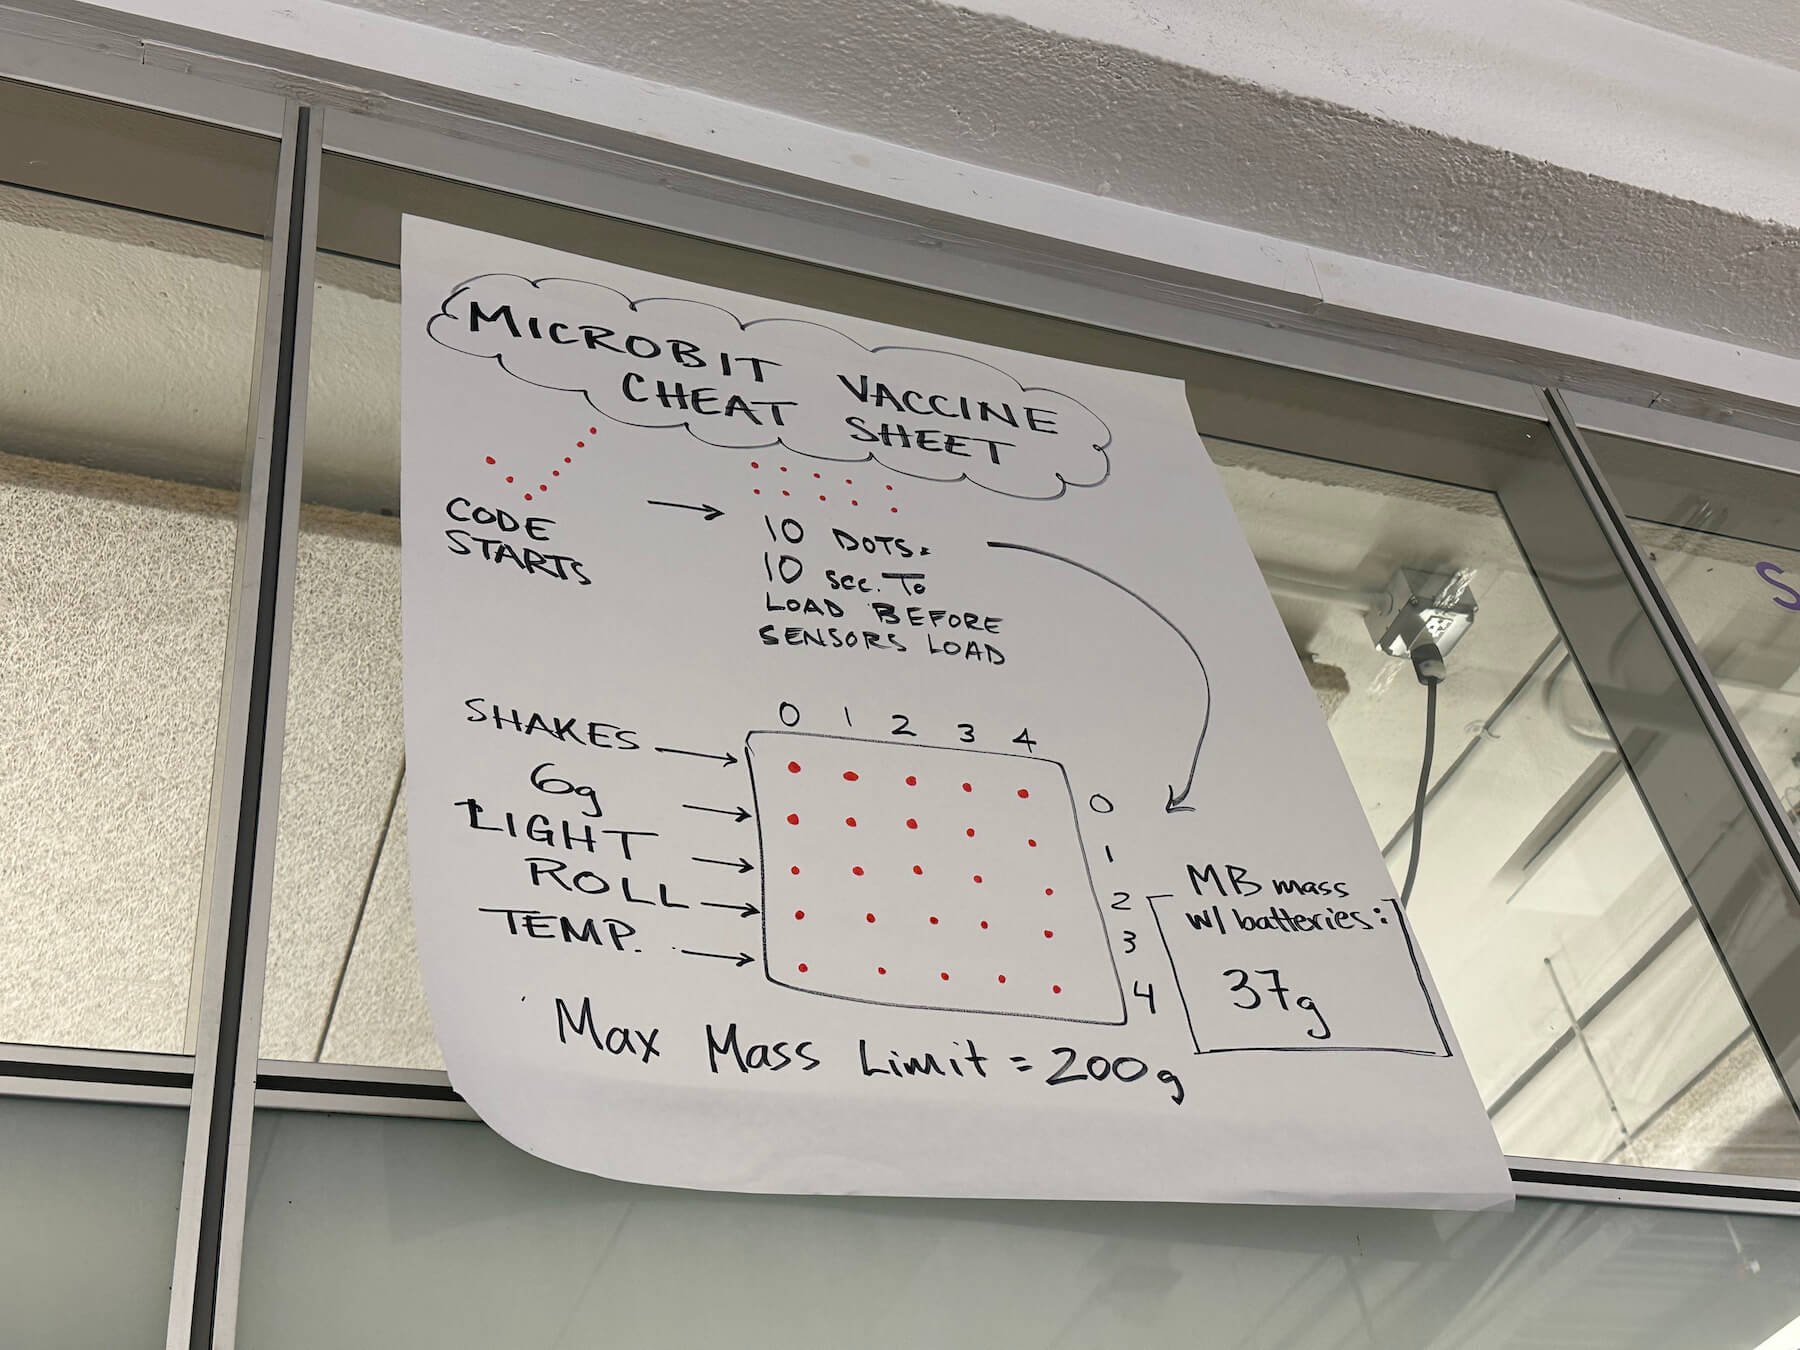 MICROBIT VACCINE
CHEAT SHEET
CODE
STARTS
10 DOTS.
10 sec. To
LOAD BEFORE
SENSORS LOAD
0 1 2 3 4
SHAKES
6g
LIGHT
ROLL
TEMP.
0
1
2
3
4
MB mass
w/ batteries:
37g
Max Mass Limit = 200g
S